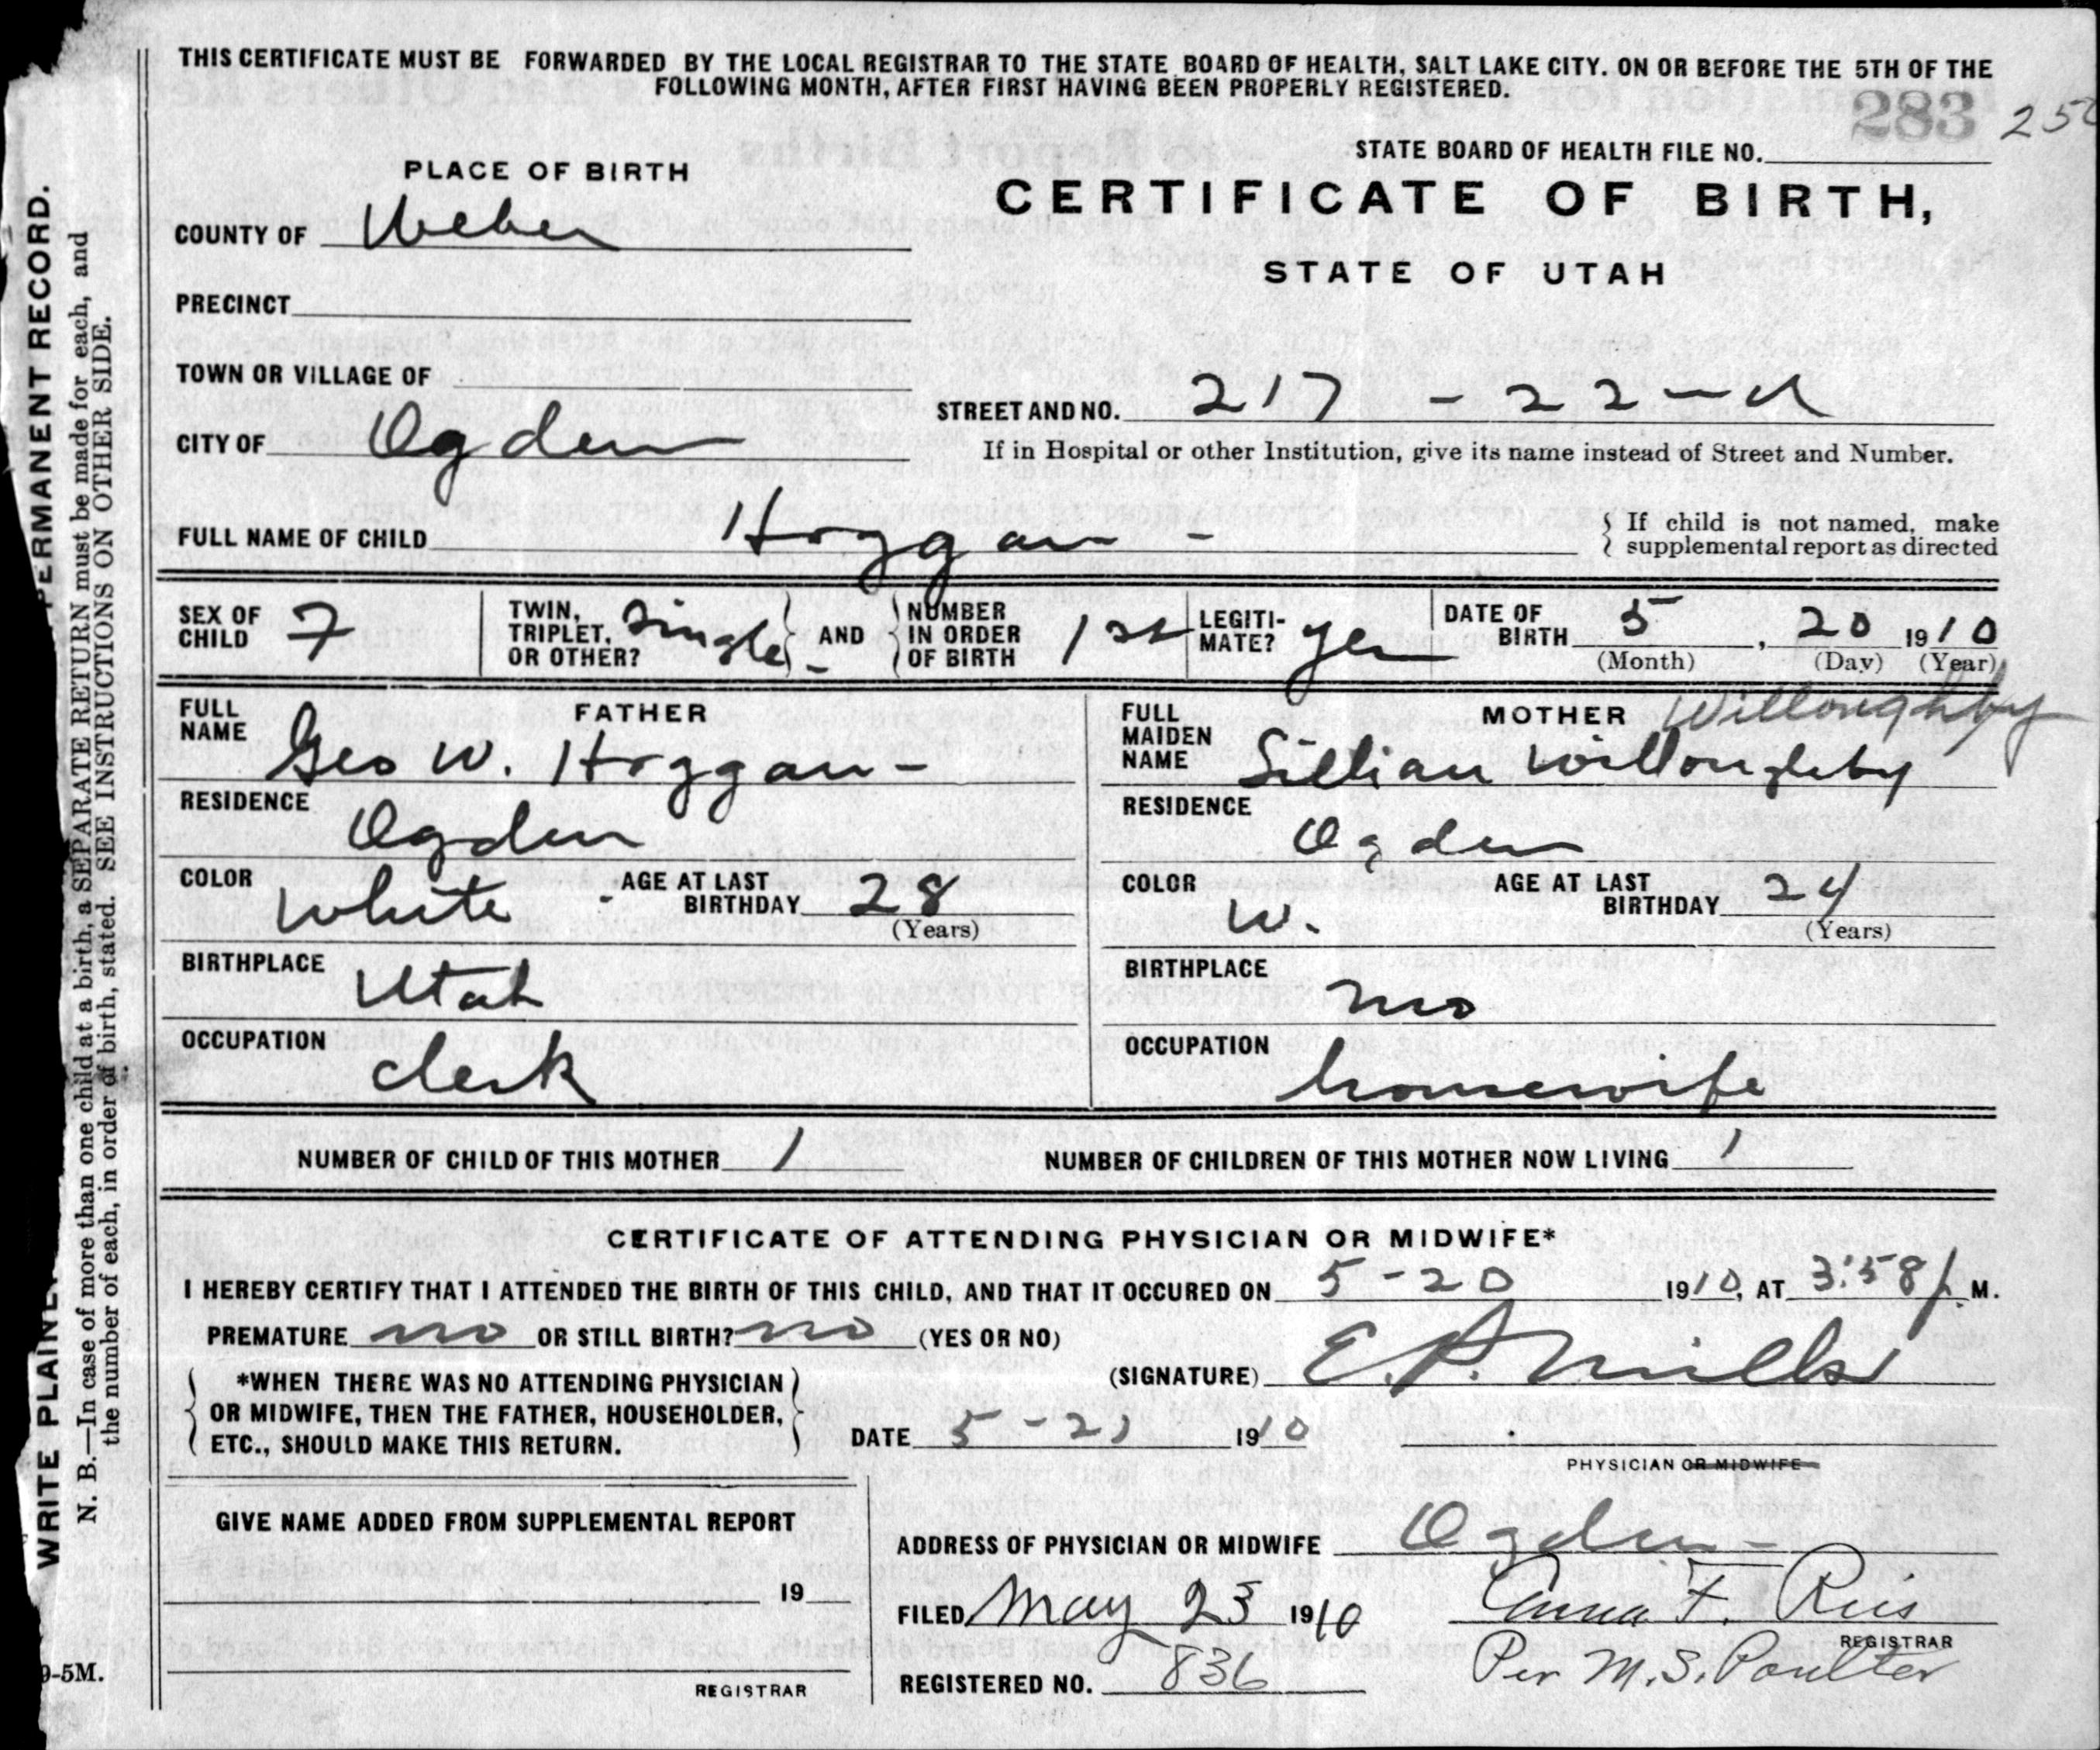 THIS CERTIFICATE MUST BE FORWARDED BY THE LOCAL REGISTRAR TO THE STATE BOARD OF HEALTH, SALT LAKE CITY. ON OR BEFORE THE 5TH OF THE
FOLLOWING MONTH, AFTER FIRST HAVING BEEN PROPERLY REGISTERED.
283
STATE BOARD OF HEALTH FILE NO.
PLACE OF BIRTH
CERTIFICATE OF BIRTH,
STATE OF UTAH
COUNTY OF Weber
PRECINCT
TOWN OR VILLAGE OF
STREET AND NO. 217 - 22 -
CITY OF Ogden
If in Hospital or other Institution, give its name instead of Street and Number.
FULL NAME OF CHILD Hoggan -
{ If child is not named, make
supplemental report as directed
SEX OF CHILD F
TWIN, TRIPLET, OR OTHER? Single
AND
NUMBER IN ORDER OF BIRTH 1st
LEGITI-MATE? yes
DATE OF BIRTH 5, 20 1910
(Month) (Day) (Year)
FATHER
FULL NAME Geo W. Hoggan -
RESIDENCE Ogden
COLOR White AGE AT LAST BIRTHDAY 28
(Years)
BIRTHPLACE Utah
OCCUPATION clerk
MOTHER Willoughby
FULL MAIDEN NAME Lillian Willoughby
RESIDENCE Ogden
COLOR W. AGE AT LAST BIRTHDAY 24
(Years)
BIRTHPLACE Mo
OCCUPATION housewife
NUMBER OF CHILD OF THIS MOTHER 1 NUMBER OF CHILDREN OF THIS MOTHER NOW LIVING 1
CERTIFICATE OF ATTENDING PHYSICIAN OR MIDWIFE*
I HEREBY CERTIFY THAT I ATTENDED THE BIRTH OF THIS CHILD, AND THAT IT OCCURED ON 5-20 1910, AT 3:58 p. M.
PREMATURE no OR STILL BIRTH? no (YES OR NO)
(SIGNATURE) E. P. Mills
*WHEN THERE WAS NO ATTENDING PHYSICIAN
OR MIDWIFE, THEN THE FATHER, HOUSEHOLDER,
ETC., SHOULD MAKE THIS RETURN.
DATE 5-21 1910
PHYSICIAN OR MIDWIFE
GIVE NAME ADDED FROM SUPPLEMENTAL REPORT
19
REGISTRAR
ADDRESS OF PHYSICIAN OR MIDWIFE Ogden -
FILED May 23 1910 Anna F. Reis
REGISTRAR
REGISTERED NO. 836 Per M. S. Poulter
WRITE PLAINLY PERMANENT RECORD.
N. B.—In case of more than one child at a birth, a SEPARATE RETURN must be made for each, and
the number of each, in order of birth, stated. SEE INSTRUCTIONS ON OTHER SIDE.
9-5M.